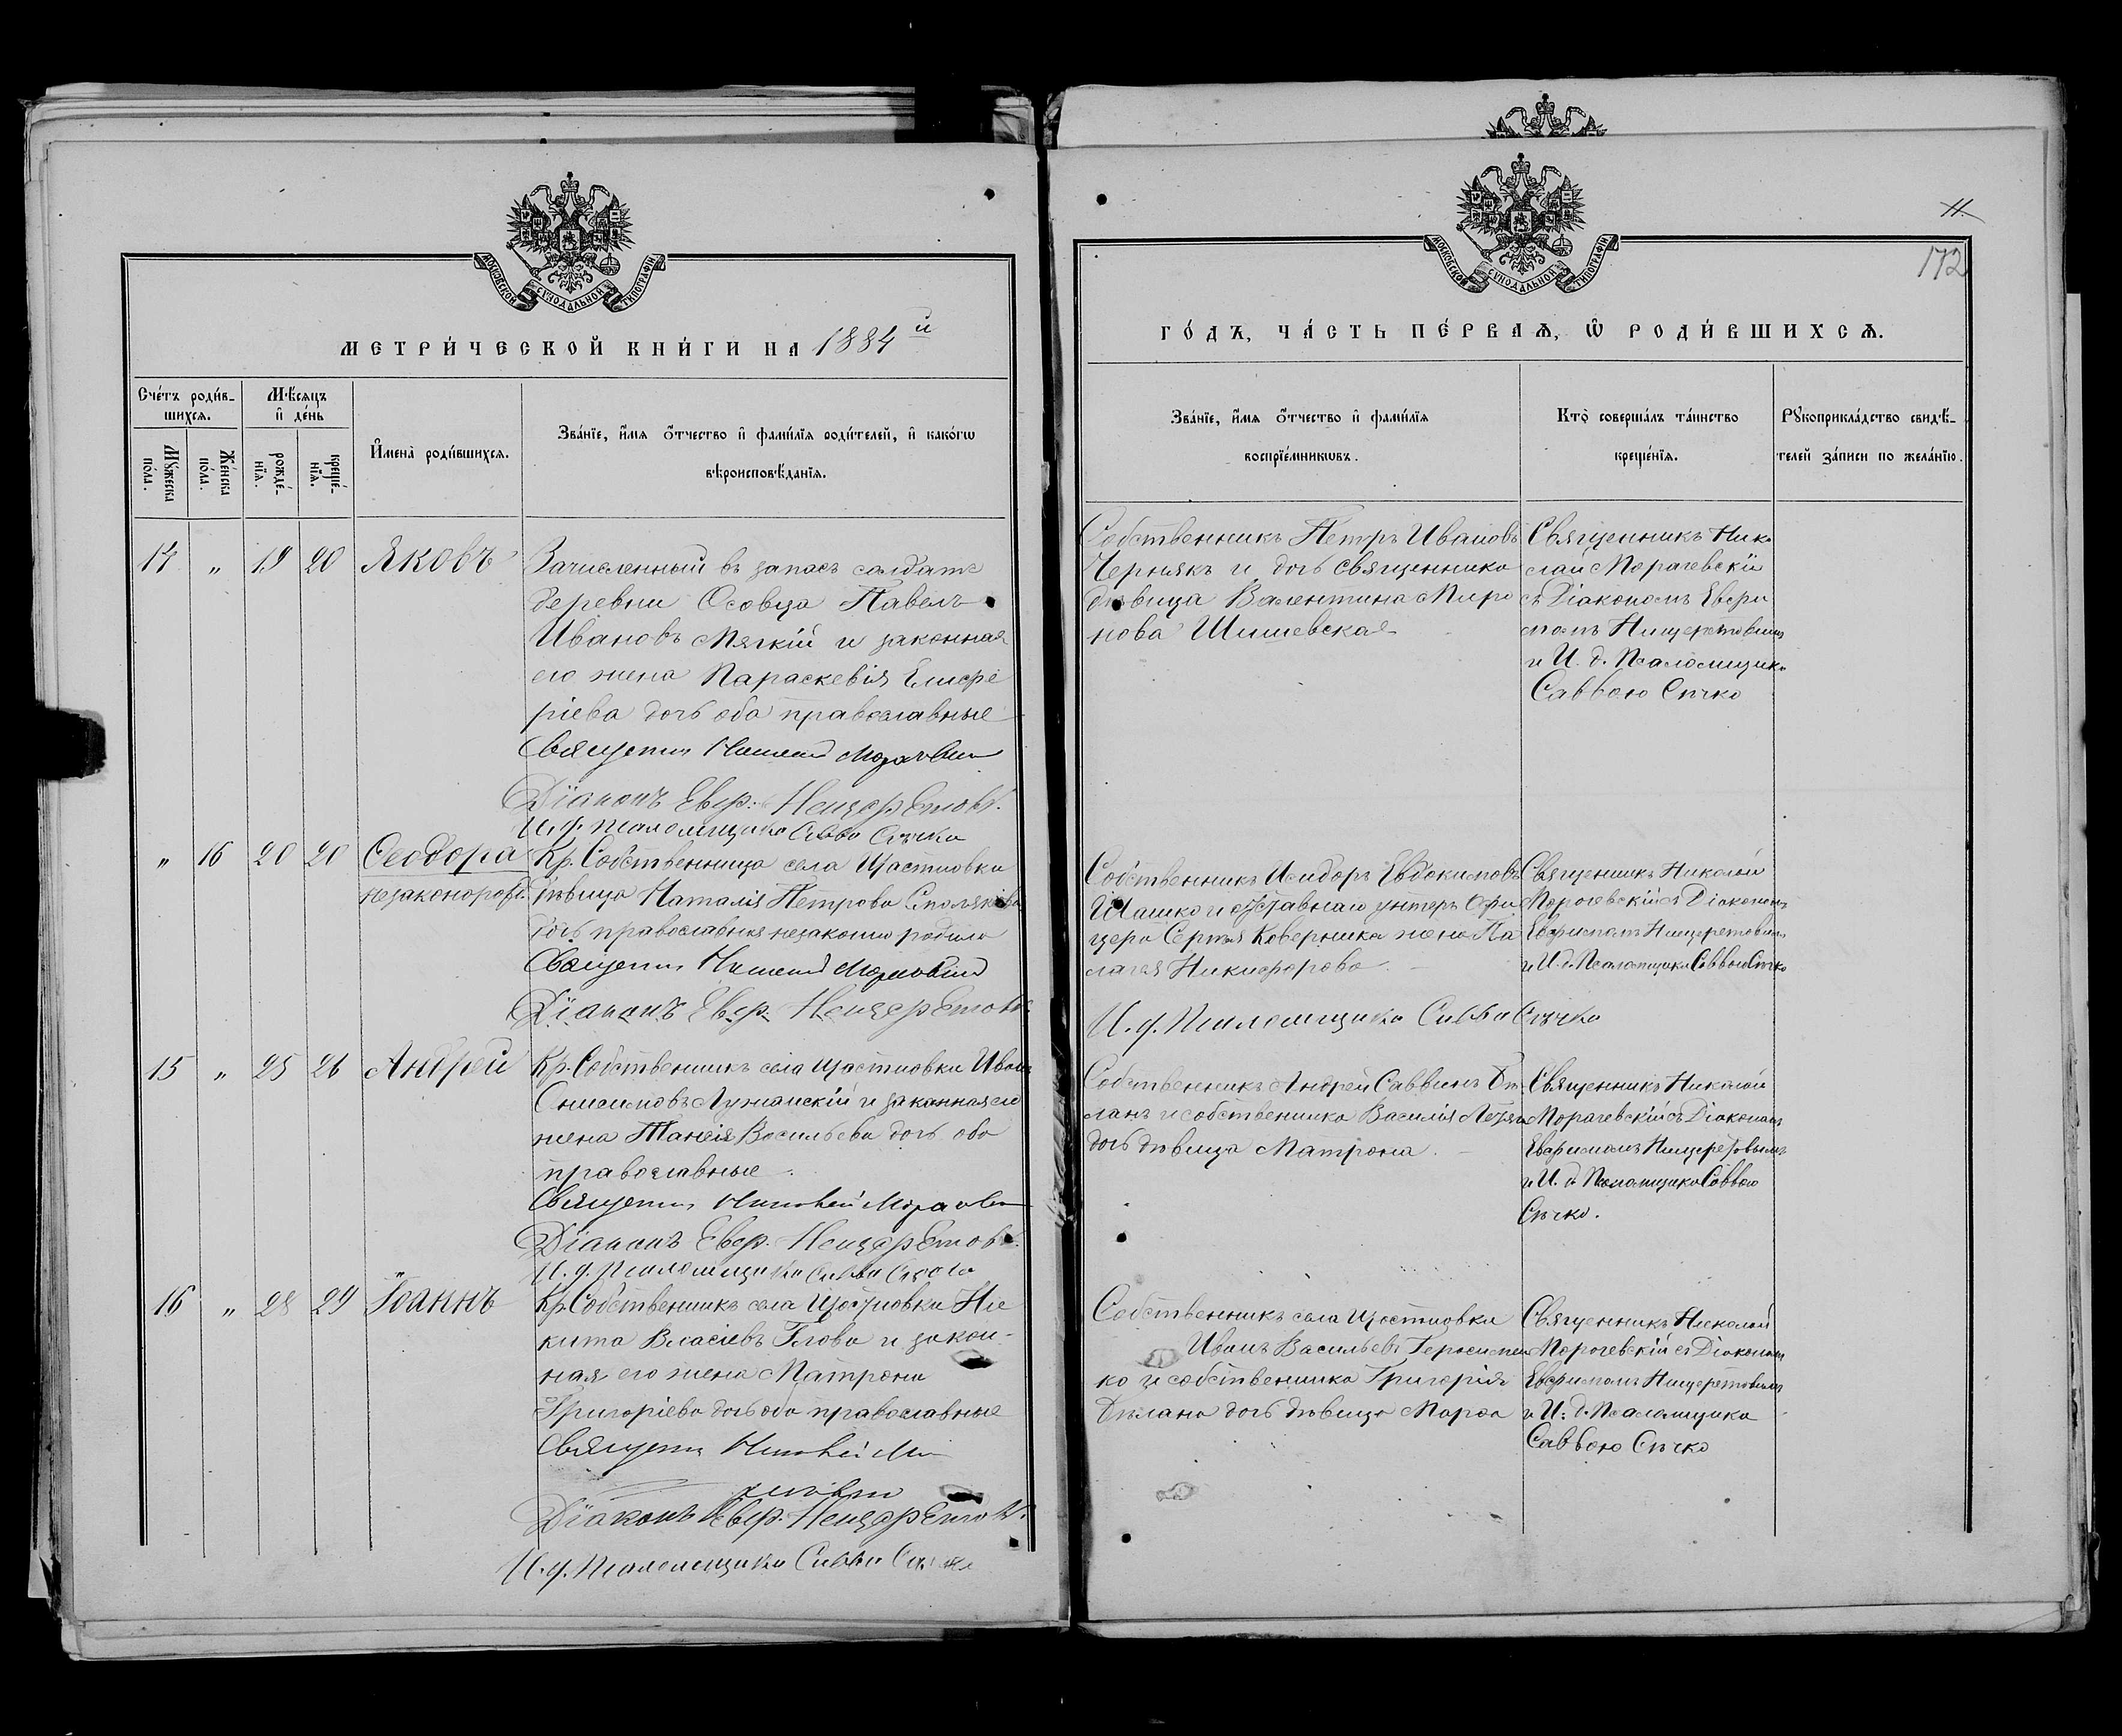 МОСКОВСКОЙ СѴНОДАЛЬНОЙ ТИПОГРАФІИ
МЕТРИ́ЧЕСКОЙ КНИ́ГИ НА 1884й
Сче́тъ роди́в-
шихсѧ.
Мѣ́сѧцъ
и҆ де́нь
И҆мена̀ роди́вшихсѧ.
Зва́нїе, и҆́мѧ ѻ҆́тчество и҆ фами́лїѧ роди́телей, и҆ како́гѡ
вѣроисповѣ́данїѧ.
Мꙋ́жеска
по́ла.
Же́нска
по́ла.
рожде́-
нїѧ.
креще́-
нїѧ.
14 " 19 20 Яковъ
Зачисленный въ запасъ солдатъ
деревни Осовца Павелъ
Ивановъ Мягкій и законная
его жена Параскевія Елифе
ріева дочь оба православные
Священ. Николай Морачевск
Діаконъ Евф. Нещеретов.
И. д. псаломщика Савва Сѣчко
" 16 20 20 Ѳеодора
незаконорожд.
Кр. Собственница села Щастновки
дѣвица Наталія Петрова
дочь православная незаконно родила
Священ. Николай Морачевскій
Діаконъ Евф. Нещеретов.
15 " 25 26 Андрей
Кр. Собственникъ села Щастновки Иванъ
Онисимовъ Лужанскій и законная его
жена Васильева дочь оба
православные
Священ. Николай Морачевск
Діаконъ Евф. Нещеретов.
И. д. Псаломщика Савва Сѣчко
16 " 28 29 Іоаннъ
Кр. Собственникъ села Щастновки Ни
кита Власіевъ Глова и закон-
ная его жена Матрона
Григоріева дочь оба православные
Священ. Николай Мо
рачевск
Діаконъ Евф. Нещеретов.
И. д. Псаломщика Савва Сѣчко
11.
172
МОСКОВСКОЙ СѴНОДАЛЬНОЙ ТИПОГРАФІИ
ГО́ДЪ, ЧА́СТЬ ПЕ́РВАѦ, Ѡ҆ РОДИ́ВШИХСѦ.
Зва́нїе, и҆́мѧ ѻ҆́тчество и҆ фами́лїѧ
воспрїе́мникѡвъ.
Кто̀ соверша́лъ та́инство
креще́нїѧ.
Рꙋкоприкла́дство свидѣ́-
телей за́писи по жела́нїю.
Собственникъ Петръ Ивановъ
Чернякъ и дочь священника
дѣвица Валентина Миро
нова Шишевская
Священникъ Нико
лай Морачевскій
съ Діакономъ Евфи
моmъ Нищеретовымъ
и И. д. Псаломщика
Саввою Сѣчко
Собственникъ Исидоръ Евдокимовъ
Шашко и отставнаго унтеръ офи
цера Сергія Коверника жена Па
лагея Никифорова
Священникъ Николай
Морачевскій съ Діакономъ
Евфимомъ Нищеретовымъ
и И. д. Псаломщика Саввою Сѣчко
И. д. Псаломщика Савва Сѣчко
Собственникъ Андрей Саввинъ Дѣ
ланъ и собственника Василія
дочь дѣвица Матрона.
Священникъ Николай
Морачевскій съ Діакономъ
Евфимомъ Нищеретовымъ
и И. д. Псаломщика Саввою
Сѣчко.
Собственникъ села Щастновки
Иванъ Васильевъ Герасимен
ко и собственника Григорія
Дѣлана дочь дѣвица Марѳа
Священникъ Николай
Морачевскій съ Діакономъ
Евфимомъ Нищеретовымъ
и И. д. Псаломщика
Саввою Сѣчко